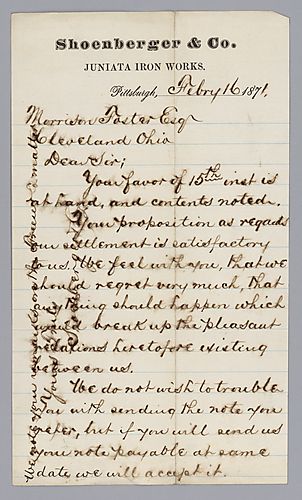 Shoenberger & Co.
JUNIATA IRON WORKS.
Pittsburgh, Febry 16 1871.
Morrison Foster Esq
Cleveland Ohio
Dear Sir;
Your favor of 15th inst is
at hand, and contents noted.
Your proposition as regards
our settlement is satisfactory
to us. We feel with you, that we
should regret very much, that
anything should happen which
would break up the pleasant
relations heretofore existing
between us.
We do not wish to trouble
you with sending the note you
refer, but if you will send us
you note payable at same
date we will accept it.
We note your remarks
Yours Truly